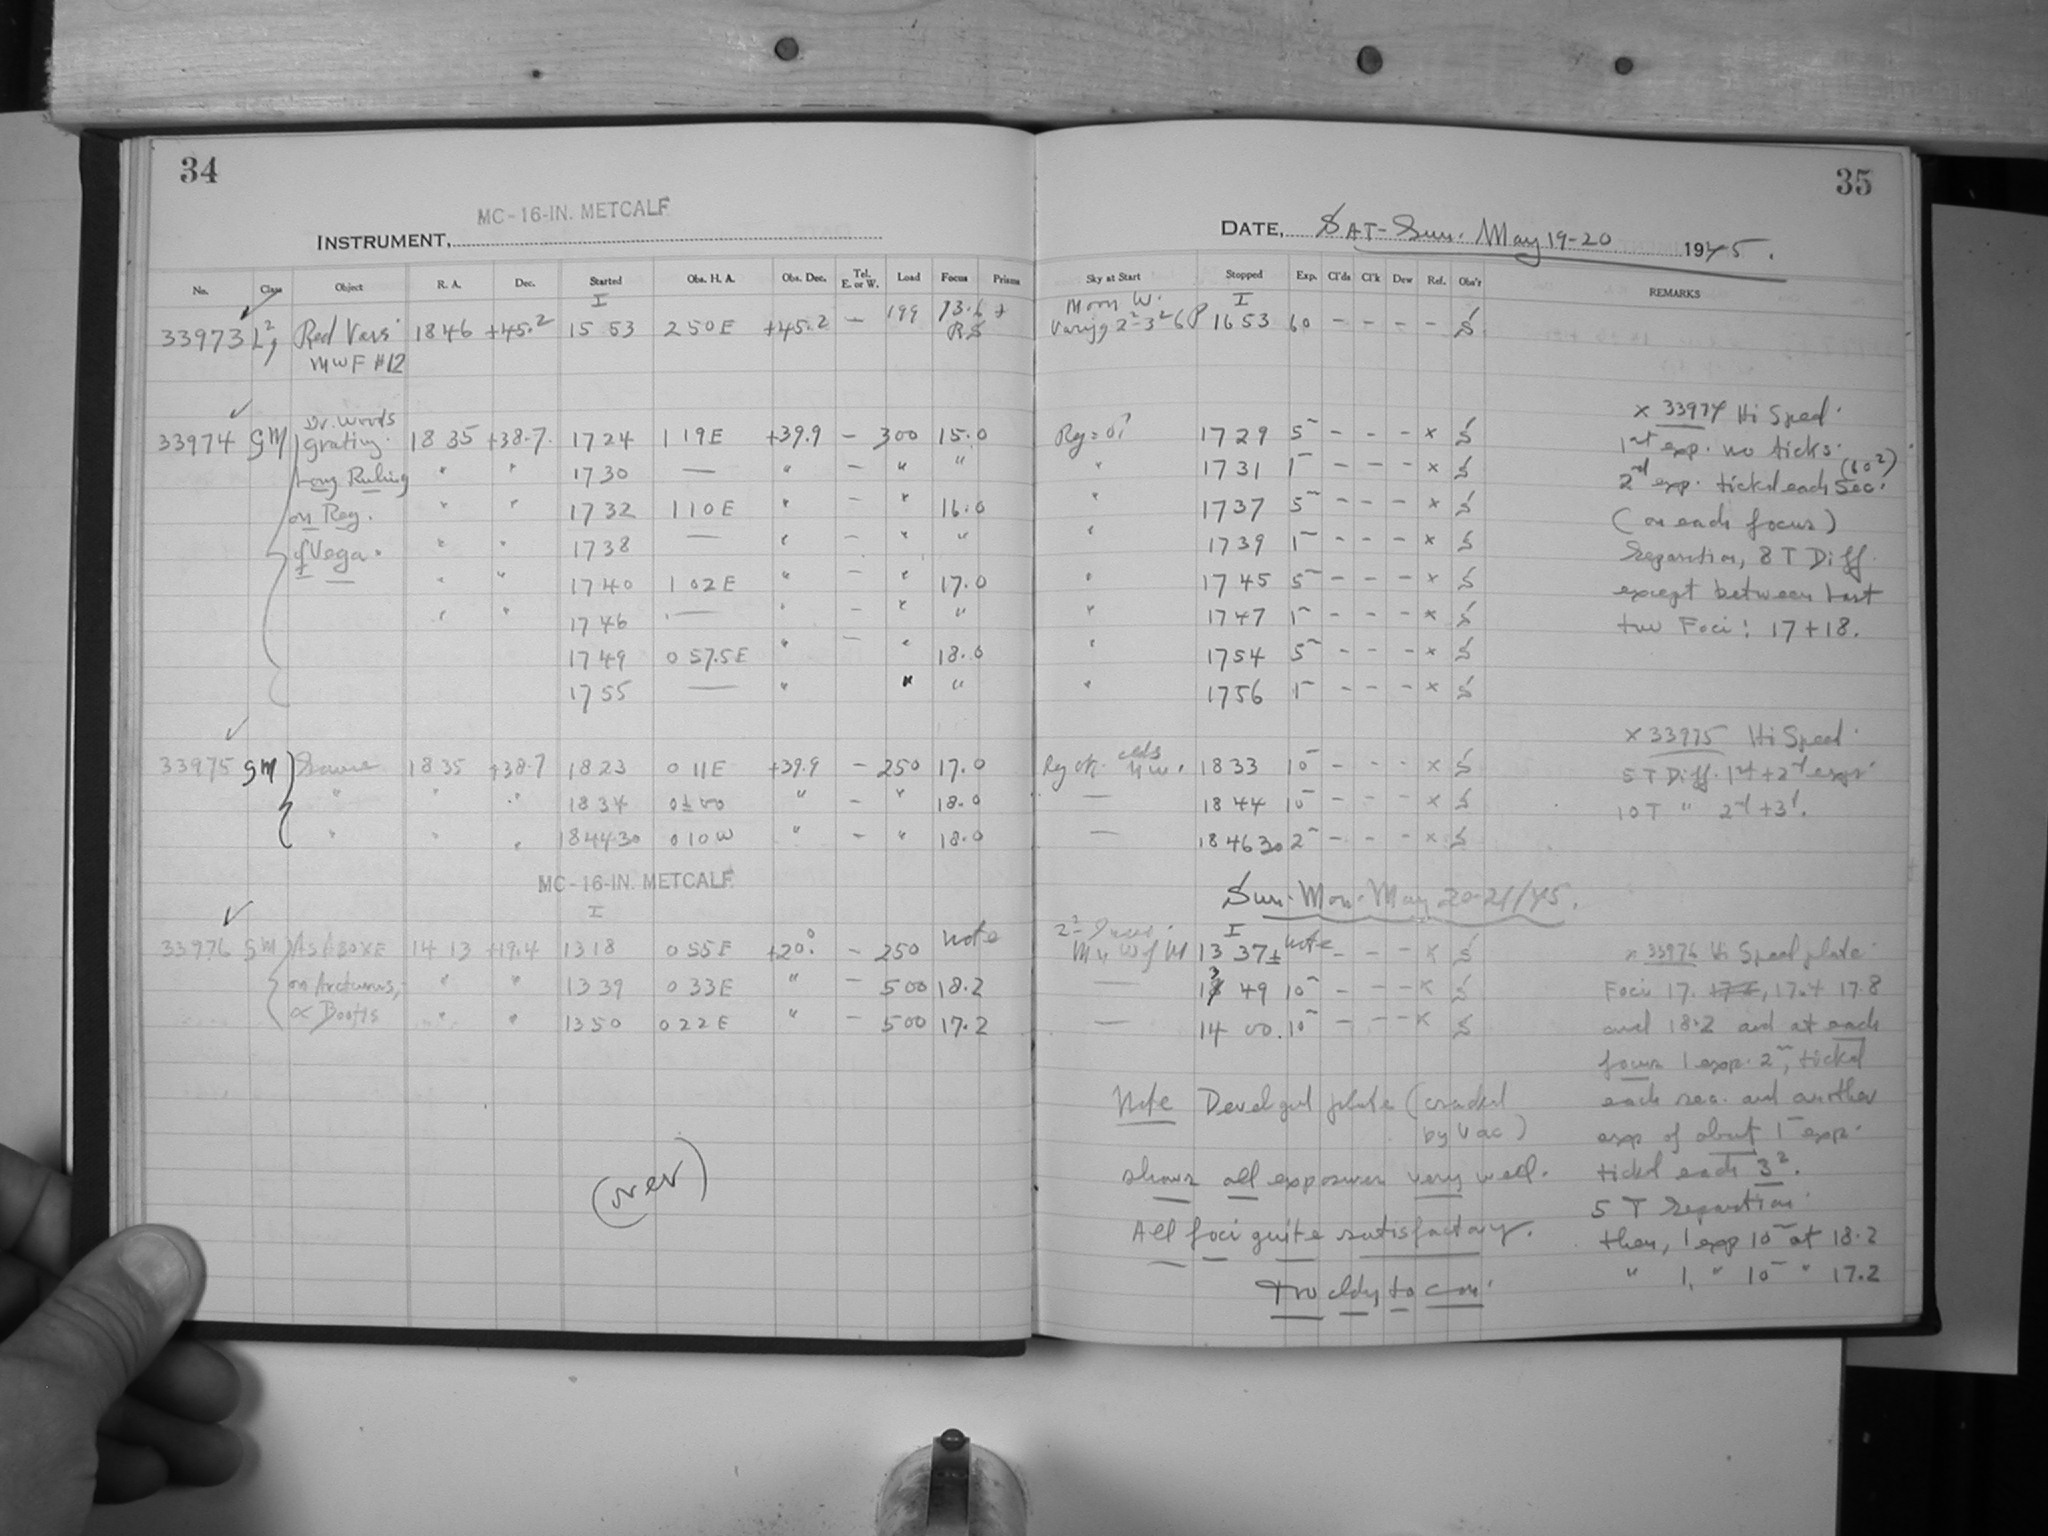 34
MC-16-IN. METCALF
INSTRUMENT,
No. Class Object R. A. Dec. Started Obs. H. A. Obs. Dec. Tel. E. or W. Load Focus Prisms
I
33973 Red Vars 18 46 +45.2 15 53 2 50 E +45.2 – 199
MWF #12
Dr. Woods
33974 GM Grating. 18 35 +38.7 17 24 1 19 E +39.9 – 300 15.0
Long Ruling " " 17 30 — " – " "
on Reg. " " 17 32 1 10 E " – " 16.0
of Vega. " " 17 38 — " – " "
" " 17 40 1 02 E " – " 17.0
" " 17 46 — " – " "
17 49 0 57.5 E " – " 18.0
17 55 — " " "
33975 GM Same 18 35 +38.7 18 23 0 11 E +39.9 – 250 17.0
" " " 18 34 0 ± 00 " – " 18.0
" " " 18 44 30 0 10 W " – " 18.0
MC-16-IN. METCALF
I
33976 GM As ABOVE 14 13 +19.4 13 18 0 55 E +20.0 – 250 Note
on Arcturus, " " 13 39 0 33 E " – 500 18.2
α Bootis " " 13 50 0 22 E " – 500 17.2
(over)
35
DATE, SAT-Sun. May 19-20 1945.
Sky at Start Stopped Exp. Cl'ds Cl'k Dew Ref. Obs'r REMARKS
Moon W. I
Varying 16 53 60 – – – – S
x 33974 Hi Speed
Reg = 17 29 5 – – – x S 1st exp. no ticks.
" 17 31 1 – – – x S 2nd exp. ticked each Sec.
" 17 37 5 – – – x S (on each focus)
" 17 39 1 – – – x S Separation, 8 T Diff.
" 17 45 5 – – – x S except between Last
" 17 47 1 – – – x S two Foci: 17 + 18.
" 17 54 5 – – – x S
" 17 56 1 – – – x S
x 33975 Hi Speed
Reg ok. clds N.W. 18 33 10 – – – x S 5 T Diff. 1st + 2nd exps
— 18 44 10 – – – x S 10 T " 2nd + 3d.
— 18 46 30 2 – – – x S
Sun-Mon-May 20-21/45.
I
13 37± Note – – – x S x 33976 Hi Speed plate
— 13 49 10 – – – x S Foci 17. 17.4 17.8
— 14 00. 10 – – – x S and 18.2 and at each
focus 1 exp. 2, ticked
Note Developed plate (cracked each sec. and another
by Vac) exp of about 1 exp.
shows all exposures very well. ticked each 3.
5 T Separation
All foci quite satisfactory. then, 1 exp 10 at 18.2
" 1, " 10 " 17.2
Too cldy to con.